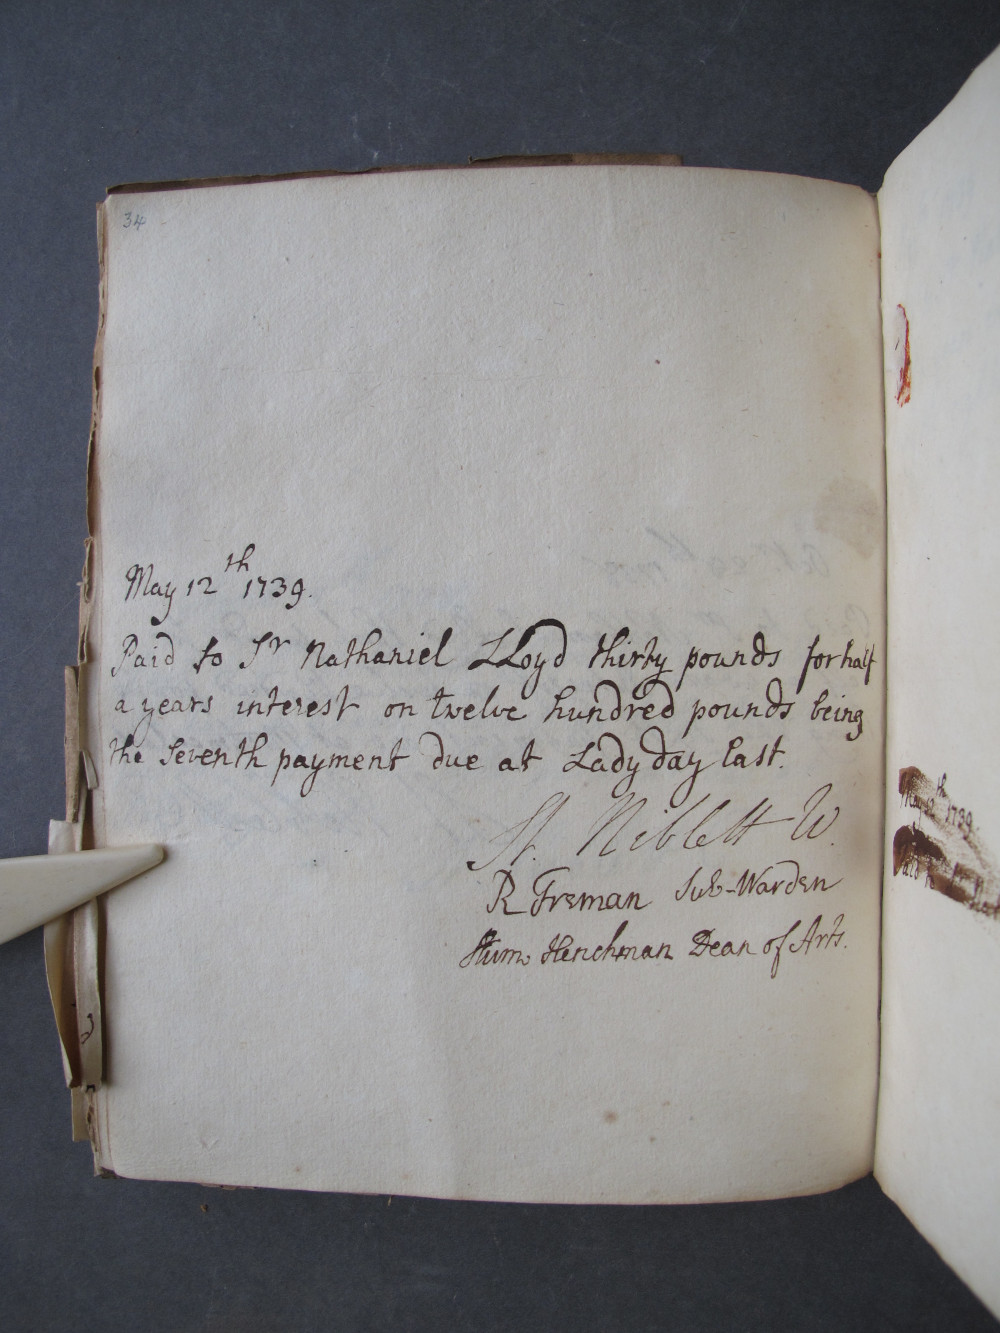 34
May 12th 1739.
Paid to Sr Nathaniel LLoyd thirty pounds for half
a years interest on twelve hundred pounds being
the Seventh payment due at Lady day last.
St. Niblett W.
R Freman Sub-Warden
Hum: Henchman Dean of Arts.
May 12th 1739.